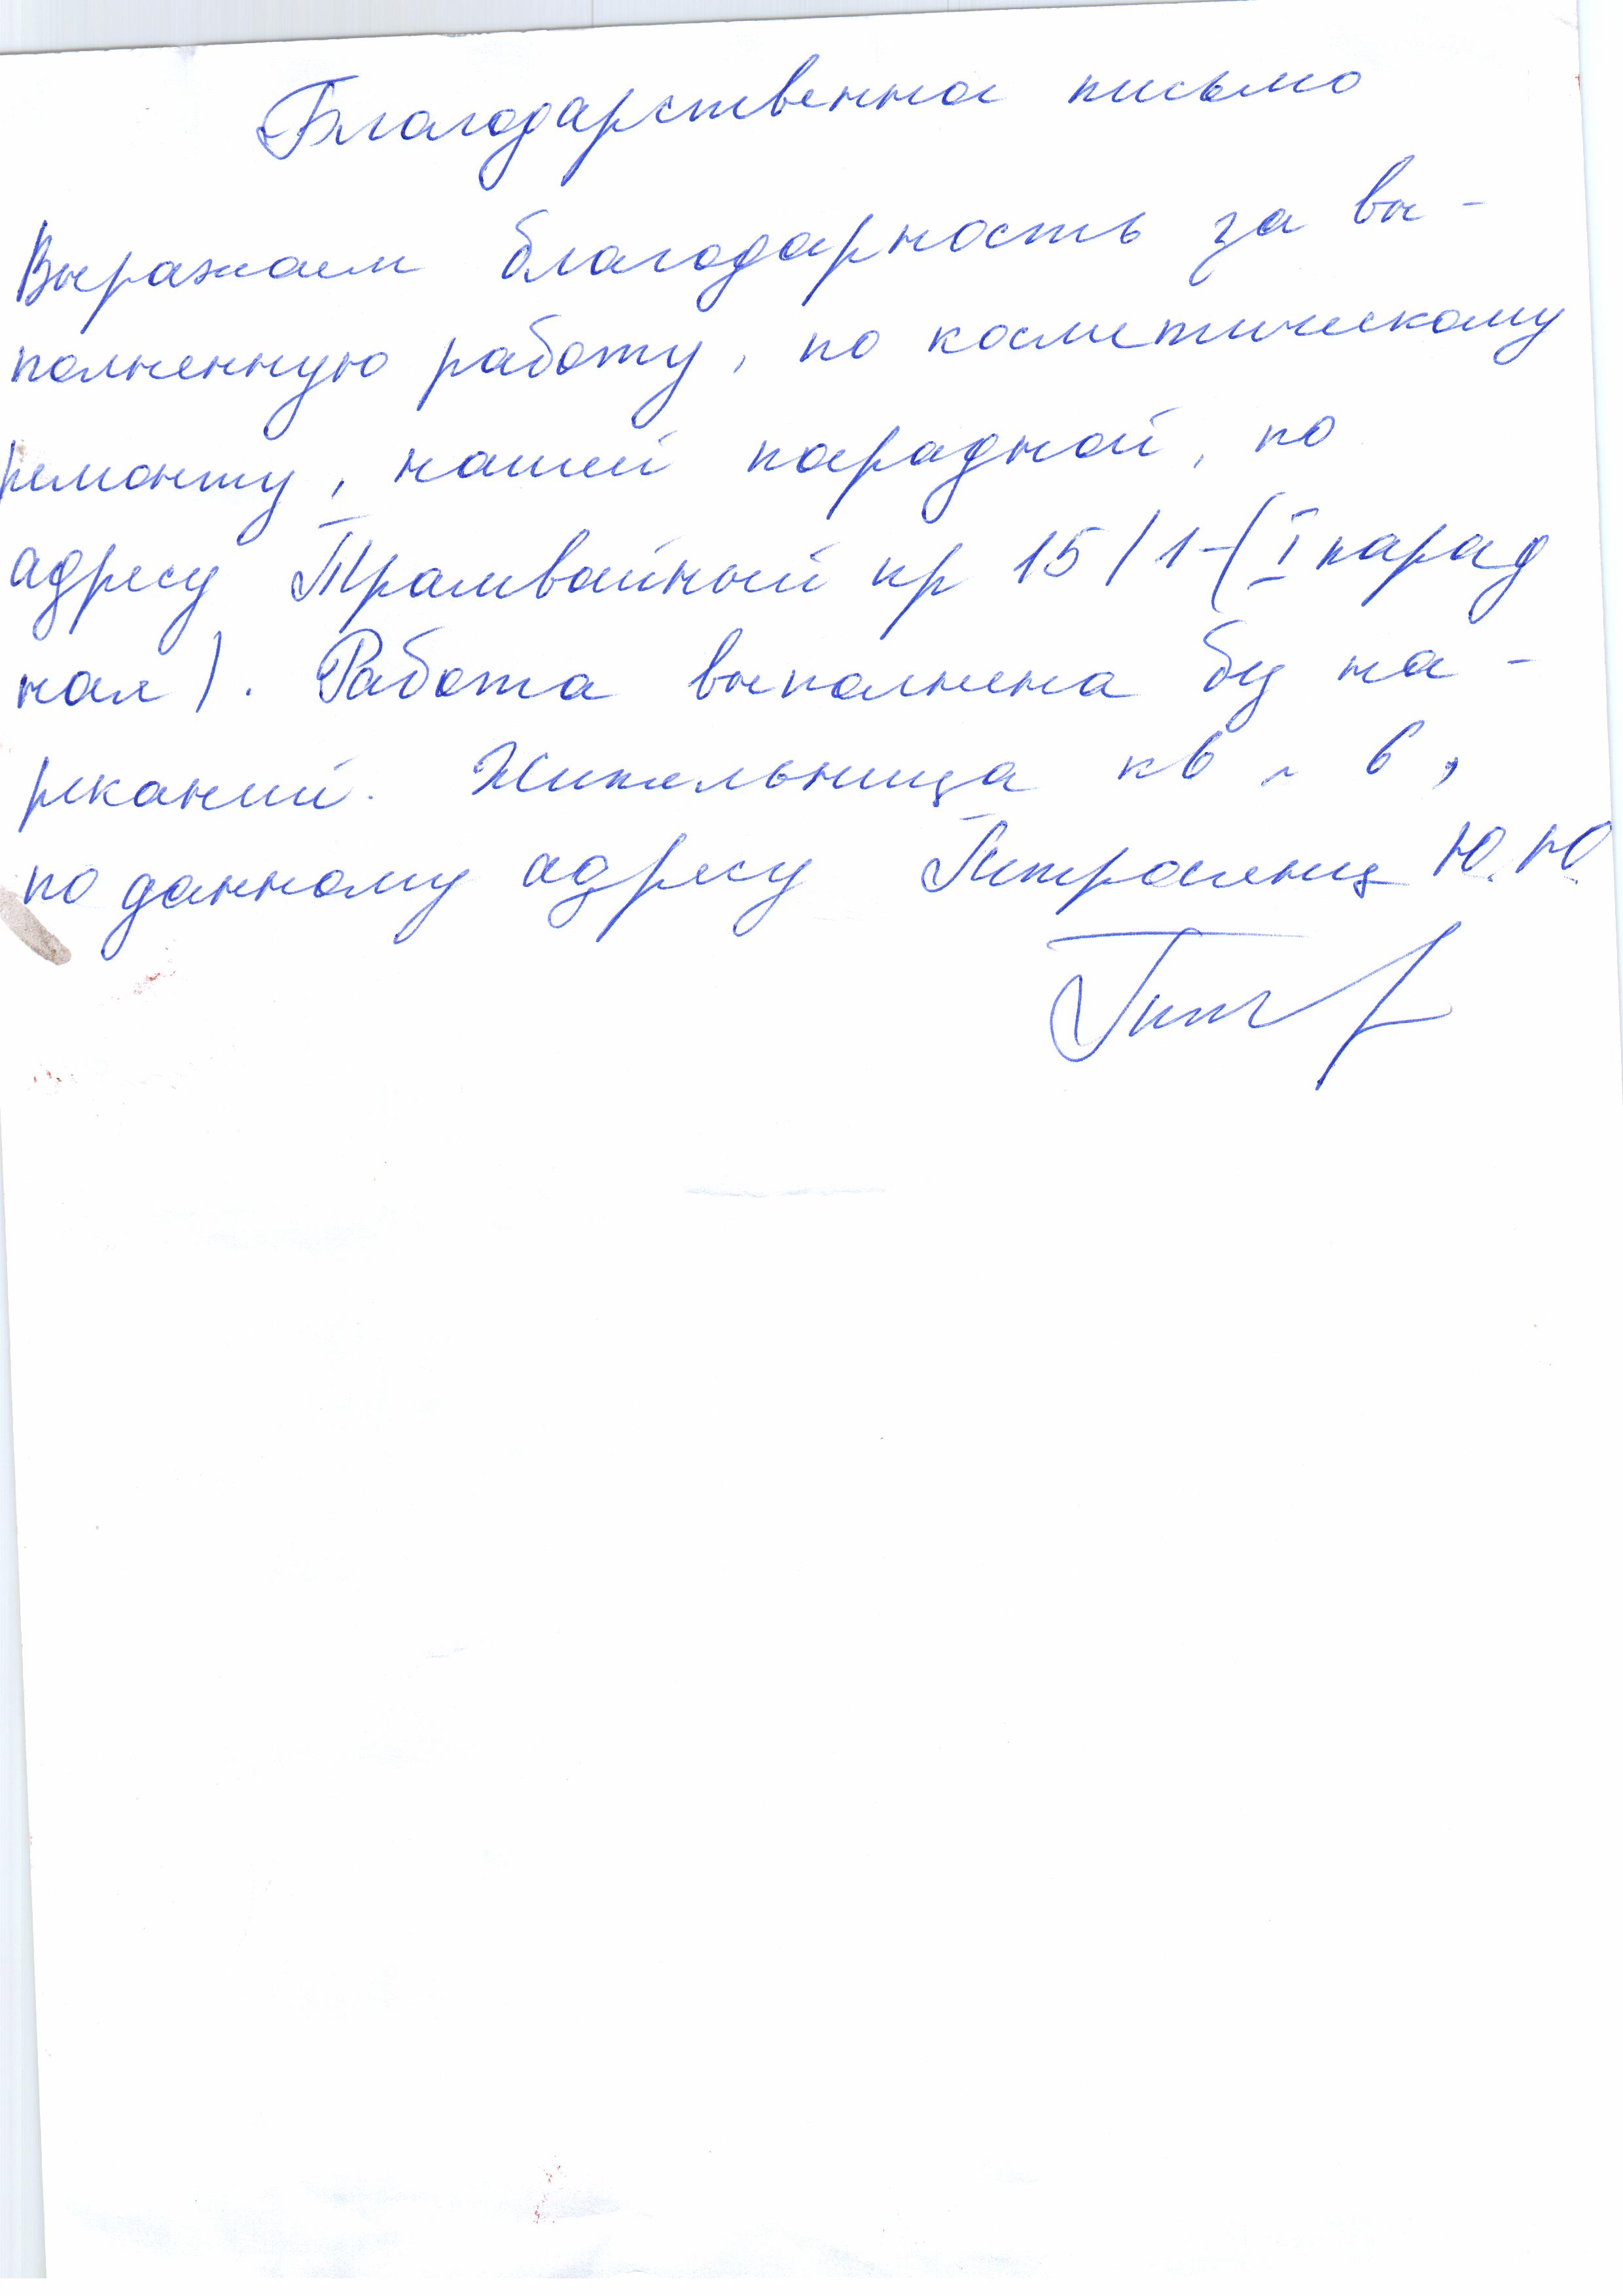 Благодарственное письмо
Выражаем благодарность за вы-
полненную работу, по косметическому
ремонту, нашей парадной, по
адресу Трамвайный пр 15/1-(I парад
ная). Работа выполнена без на-
реканий. Жительница кв. 6,
по данному адресу Ю.Ю.